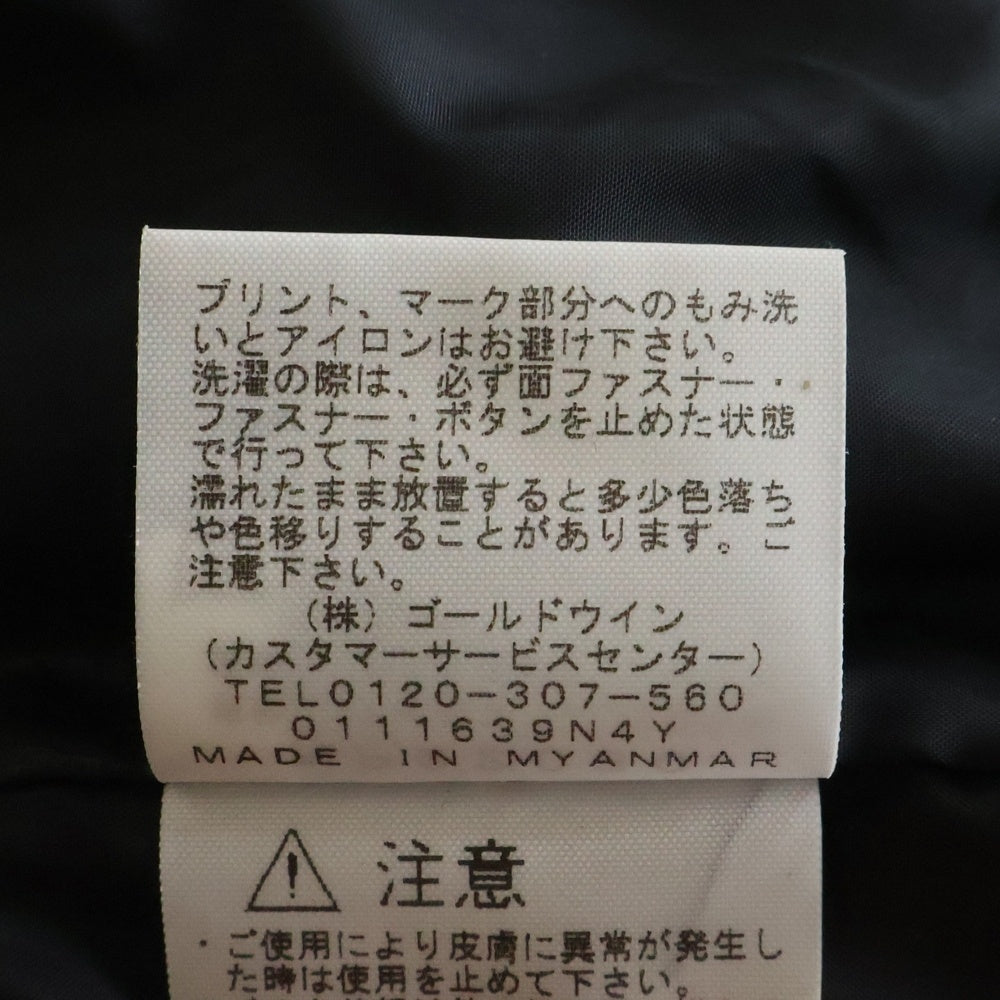 プリント、マーク部分へのもみ洗
いとアイロンはお避け下さい。
洗濯の際は、必ず面ファスナー・
ファスナー・ボタンを止めた状態
で行って下さい。
濡れたまま放置すると多少色落ち
や色移りすることがあります。ご
注意下さい。
(株)ゴールドウイン
(カスタマーサービスセンター)
TEL0120-307-560
0111639N4Y
MADE IN MYANMAR
注意
・ご使用により皮膚に異常が発生し
た時は使用を止めて下さい。